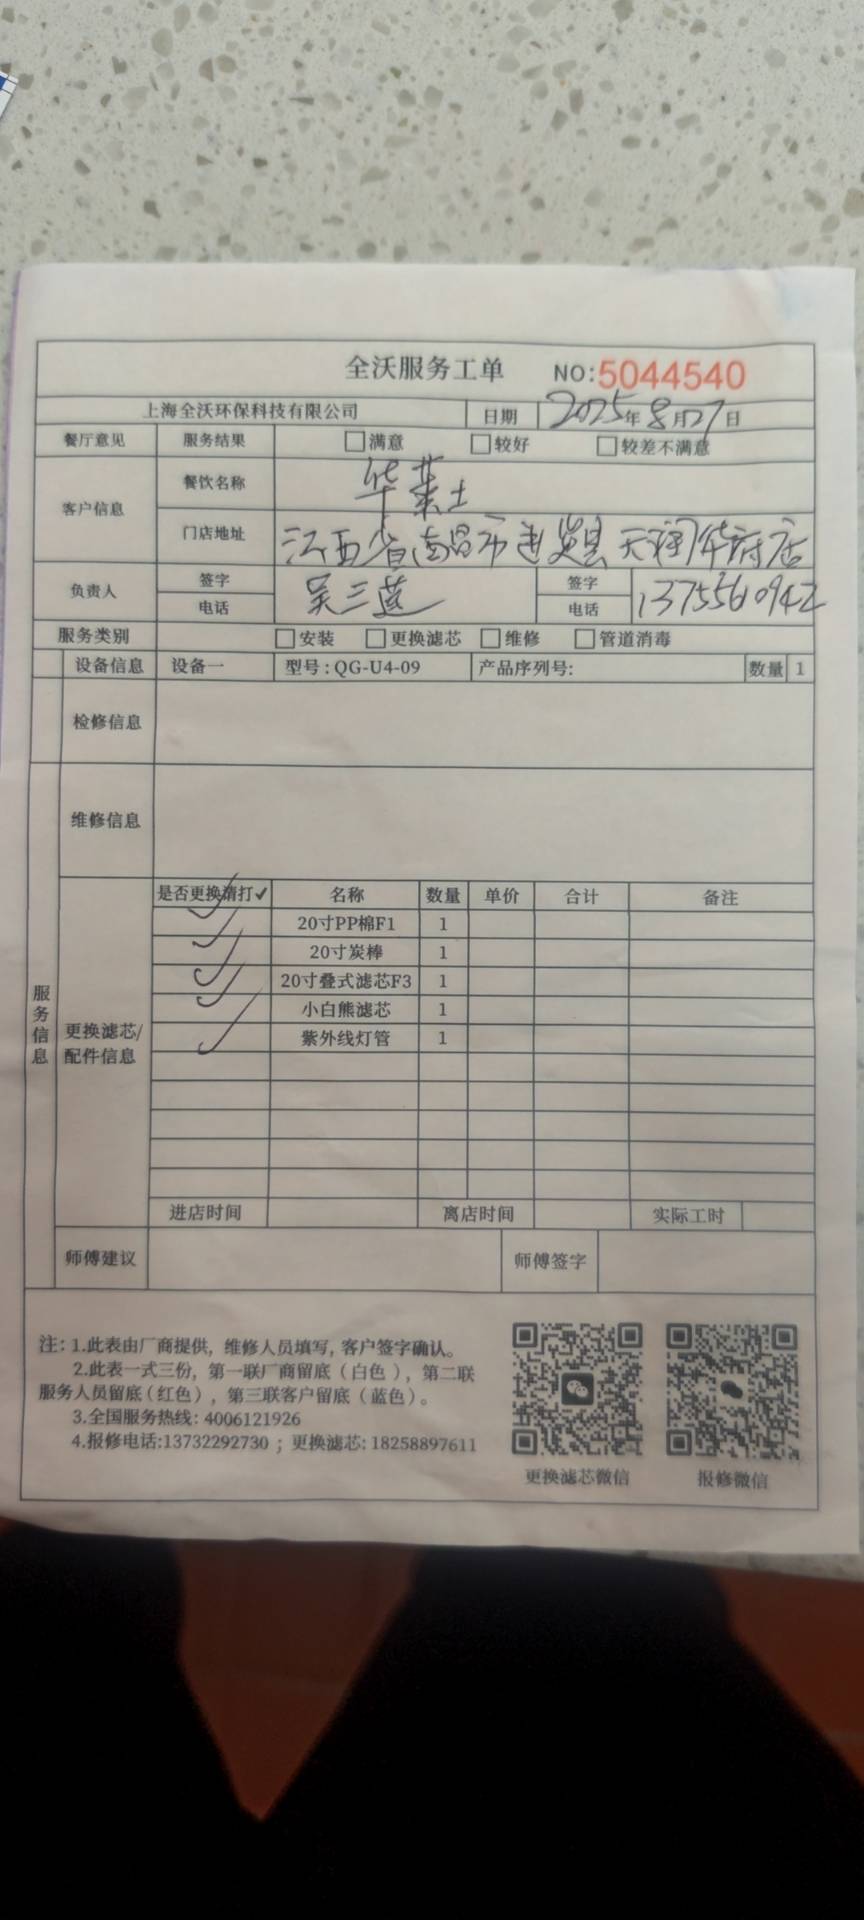 全沃服务工单 NO:5044540
上海全沃环保科技有限公司 日期 2025年8月27日
餐厅意见 服务结果 □满意 □较好 □较差不满意
客户信息 餐饮名称 华莱士
门店地址 江西省南昌市进贤县天润华府店
负责人 签字 吴三莲 签字
电话 电话 13755610942
服务类别 □安装 □更换滤芯 □维修 □管道消毒
设备信息 设备一 型号:QG-U4-09 产品序列号: 数量 1
检修信息
维修信息
服务信息
更换滤芯/配件信息
是否更换请打✓ 名称 数量 单价 合计 备注
✓ 20寸PP棉F1 1
✓ 20寸炭棒 1
✓ 20寸叠式滤芯F3 1
✓ 小白熊滤芯 1
✓ 紫外线灯管 1
进店时间 离店时间 实际工时
师傅建议 师傅签字
注: 1.此表由厂商提供, 维修人员填写, 客户签字确认。
2.此表一式三份, 第一联厂商留底(白色), 第二联
服务人员留底(红色), 第三联客户留底(蓝色)。
3.全国服务热线: 4006121926
4.报修电话:13732292730 ; 更换滤芯: 18258897611
更换滤芯微信 报修微信